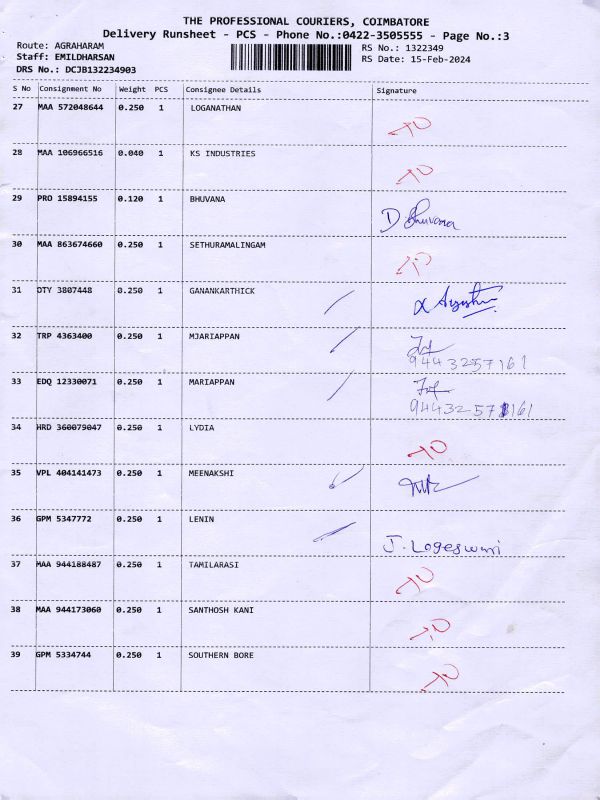 THE PROFESSIONAL COURIERS, COIMBATORE
Delivery Runsheet - PCS - Phone No.:0422-3505555 - Page No.:3
Route: AGRAHARAM RS No.: 1322349
Staff: EMILDHARSAN RS Date: 15-Feb-2024
DRS No.: DCJB132234903
S No Consignment No Weight PCS Consignee Details Signature
27 MAA 572048644 0.250 1 LOGANATHAN
28 MAA 106966516 0.040 1 KS INDUSTRIES
29 PRO 15894155 0.120 1 BHUVANA D Bhuvana
30 MAA 863674660 0.250 1 SETHURAMALINGAM
31 DTY 3807448 0.250 1 GANANKARTHICK
32 TRP 4363400 0.250 1 MJARIAPPAN
9443257161
33 EDQ 12330071 0.250 1 MARIAPPAN
9443257161
34 HRD 360079047 0.250 1 LYDIA
35 VPL 404141473 0.250 1 MEENAKSHI
36 GPM 5347772 0.250 1 LENIN
J. Logeswari
37 MAA 944188487 0.250 1 TAMILARASI
38 MAA 944173060 0.250 1 SANTHOSH KANI
39 GPM 5334744 0.250 1 SOUTHERN BORE